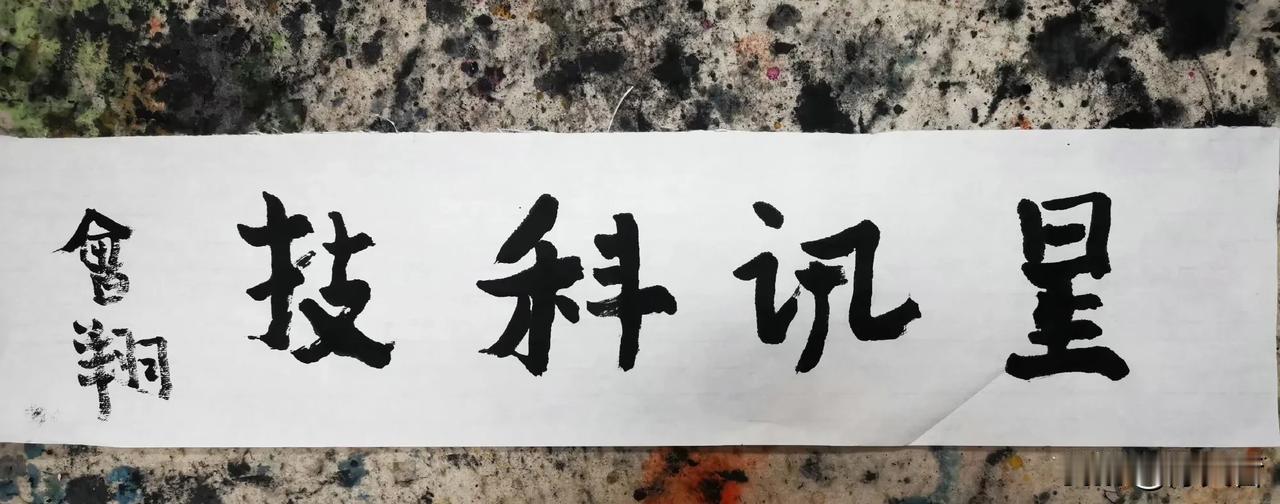 星讯科技
會翔